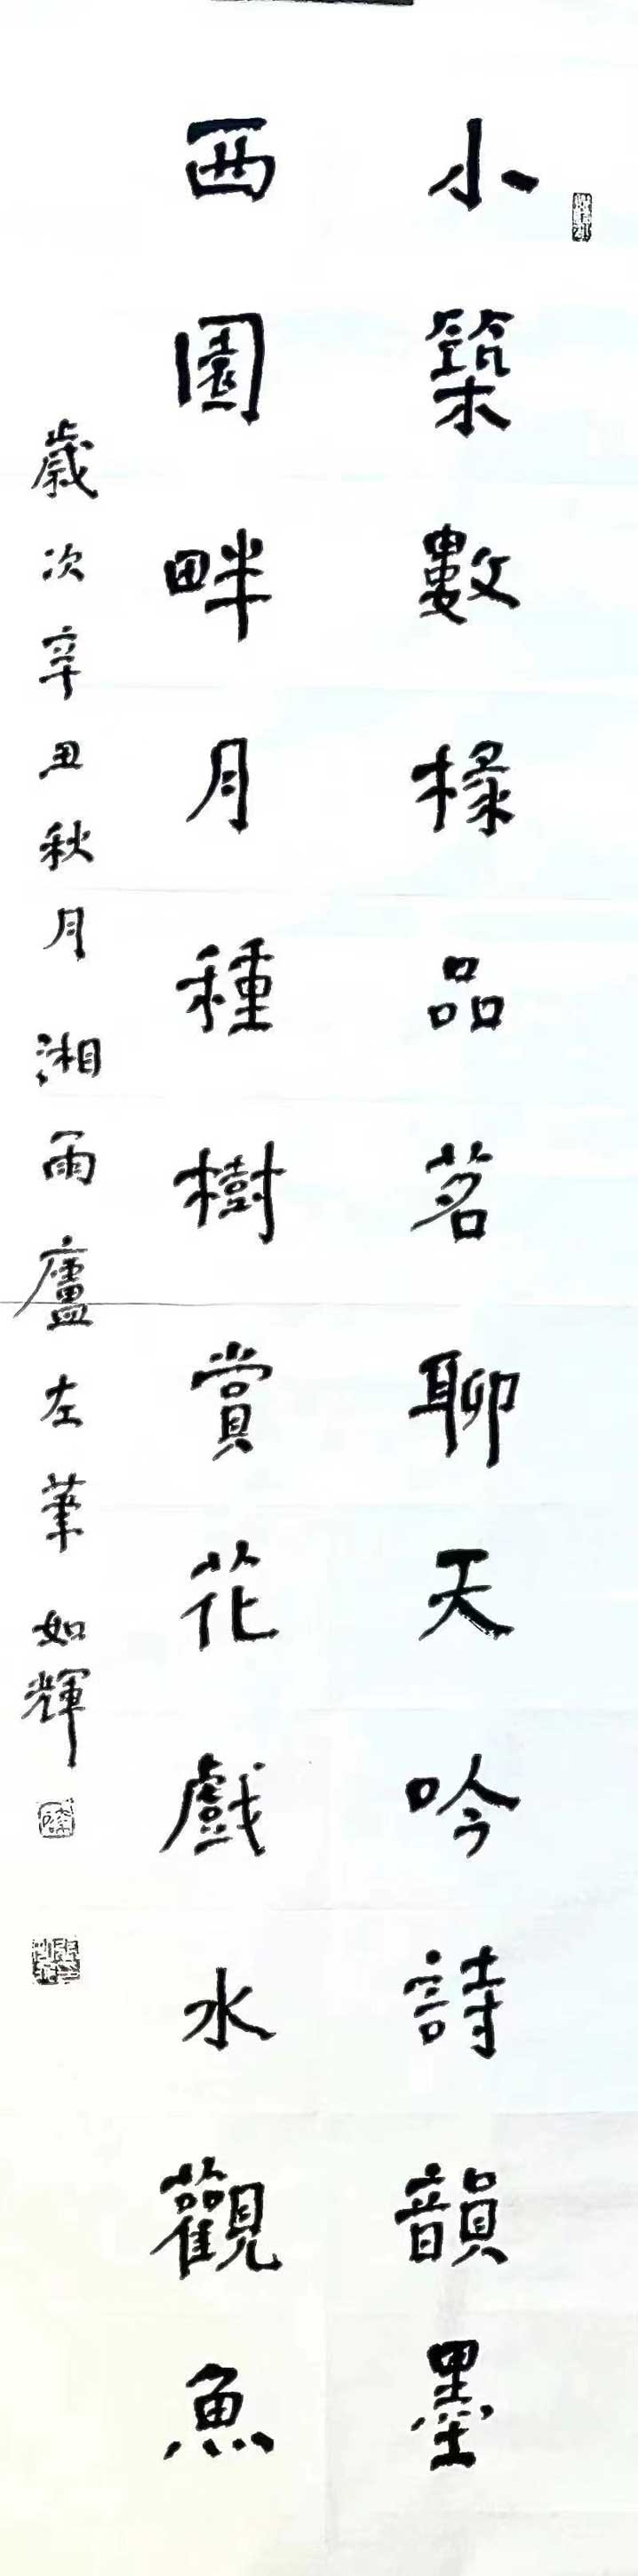 小築數椽品茗聊天吟詩韻墨
西園畔月種樹賞花戲水觀魚
歲次辛丑秋月湘雨廬左筆如輝